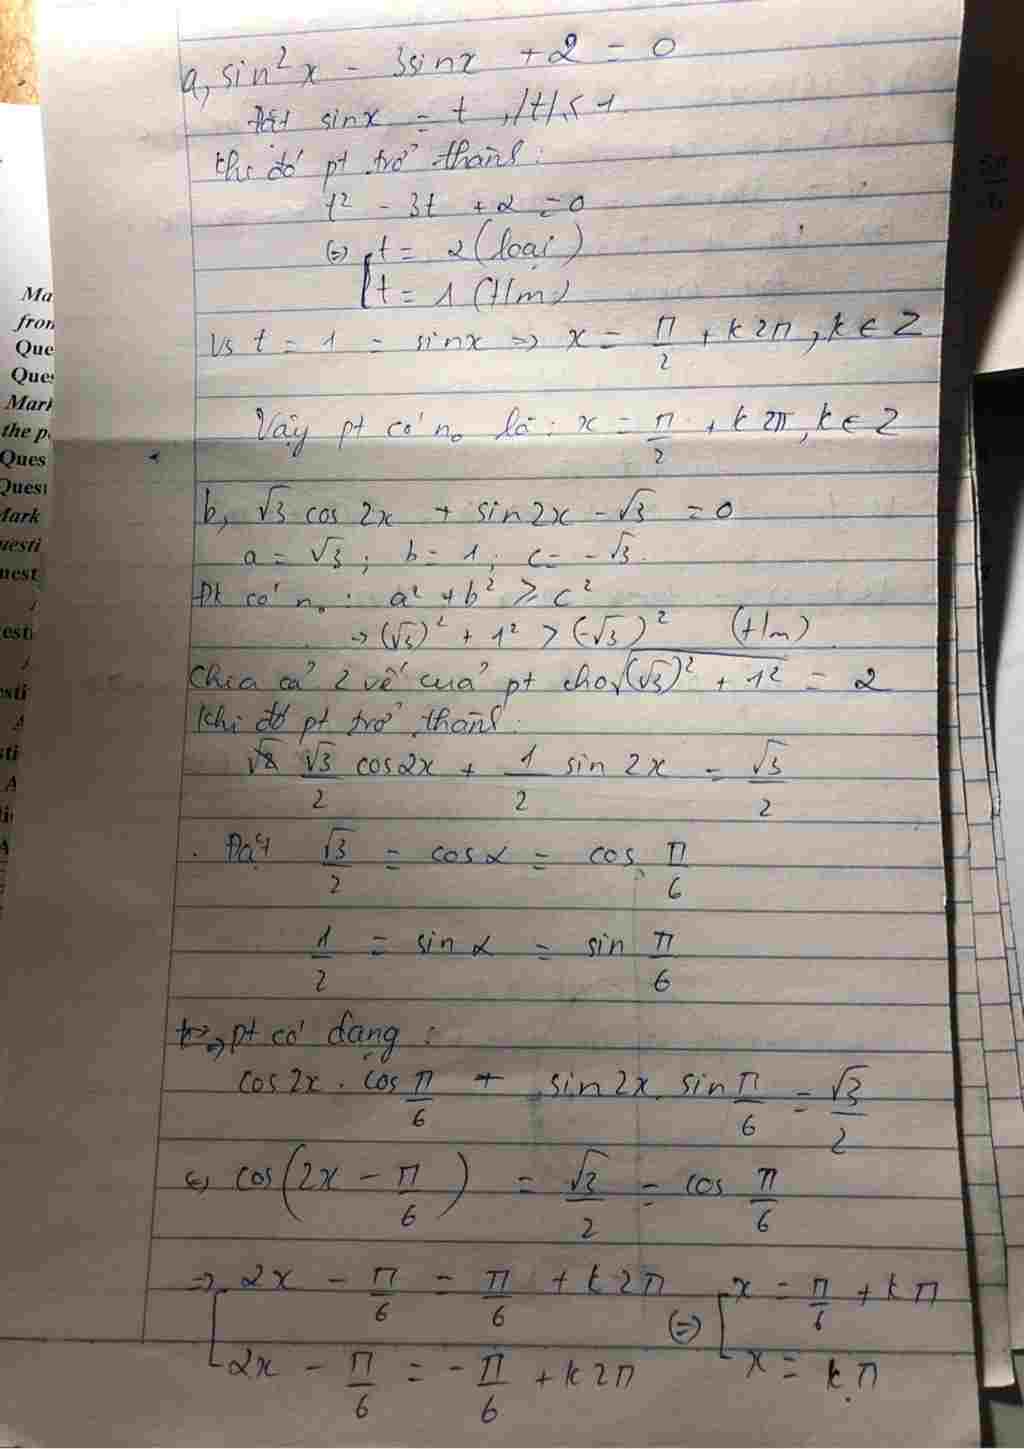 a, sin²x - 3sinx + 2 = 0
Đặt sinx = t , |t| ≤ 1
khi đó pt trở thành :
t² - 3t + 2 = 0
(=) [ t = 2 (loại)
t = 1 (t/m)
vs t = 1 = sinx => x = π/2 + k2π, k ∈ Z
Vậy pt có n₀ là : x = π/2 + k2π, k ∈ Z
b, √3 cos 2x + sin2x - √3 = 0
a = √3 ; b = 1 ; c = -√3.
Đk có n₀ : a² + b² ≥ c²
-> (√3)² + 1² > (-√3)² (t/m)
Chia cả 2 vế của pt cho √((√3)² + 1²) = 2
khi đó pt trở thành :
√3/2 cos2x + 1/2 sin 2x = √3/2
. Đặt √3/2 = cosα = cos π/6
1/2 = sin α = sin π/6
=> pt có dạng :
cos2x . cos π/6 + sin2x . sin π/6 = √3/2
(=) cos(2x - π/6) = √3/2 = cos π/6
=> [ 2x - π/6 = π/6 + k2π (=) [ x = π/6 + kπ
2x - π/6 = -π/6 + k2π x = kπ
Ma
from
Que
Ques
Mark
the p
Ques
Quest
Mark
uesti
uest
esti
esti
sti
A